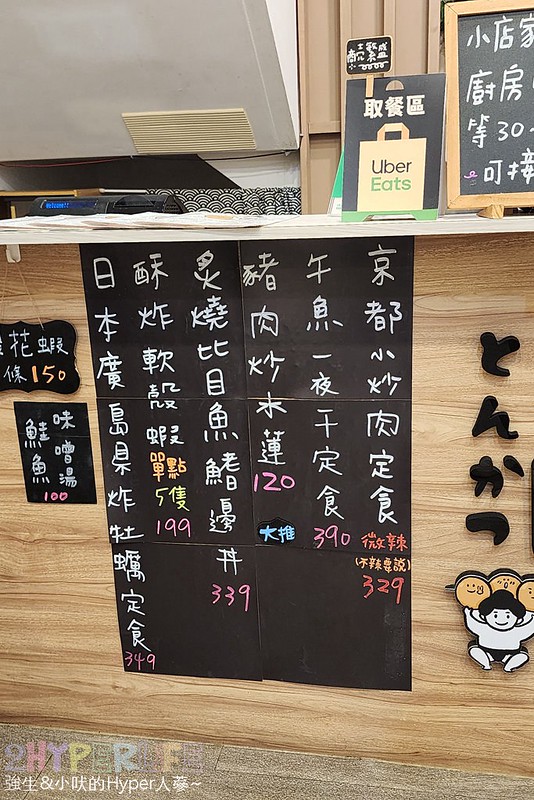 小店家
廚房
等30~
可接
生意
興隆
取餐區
Uber
Eats
Welcome!!
京都小炒肉定食
微辣
(不辣要說)
329
午魚一夜干定食
390
豬肉炒水蓮
120
大推
炙燒比目魚鰭邊丼
339
酥炸軟殼蝦
單點
5隻
199
日本廣島県炸牡蠣定食
349
花蝦
條150
味噌湯
鮭魚
100
とんかつ
HYPERLIFE
強生&小吠的Hyper人蔘~